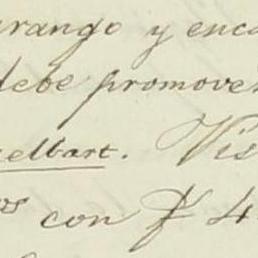 urango y enca
debe promover
elbart. Vis
os con $ 4